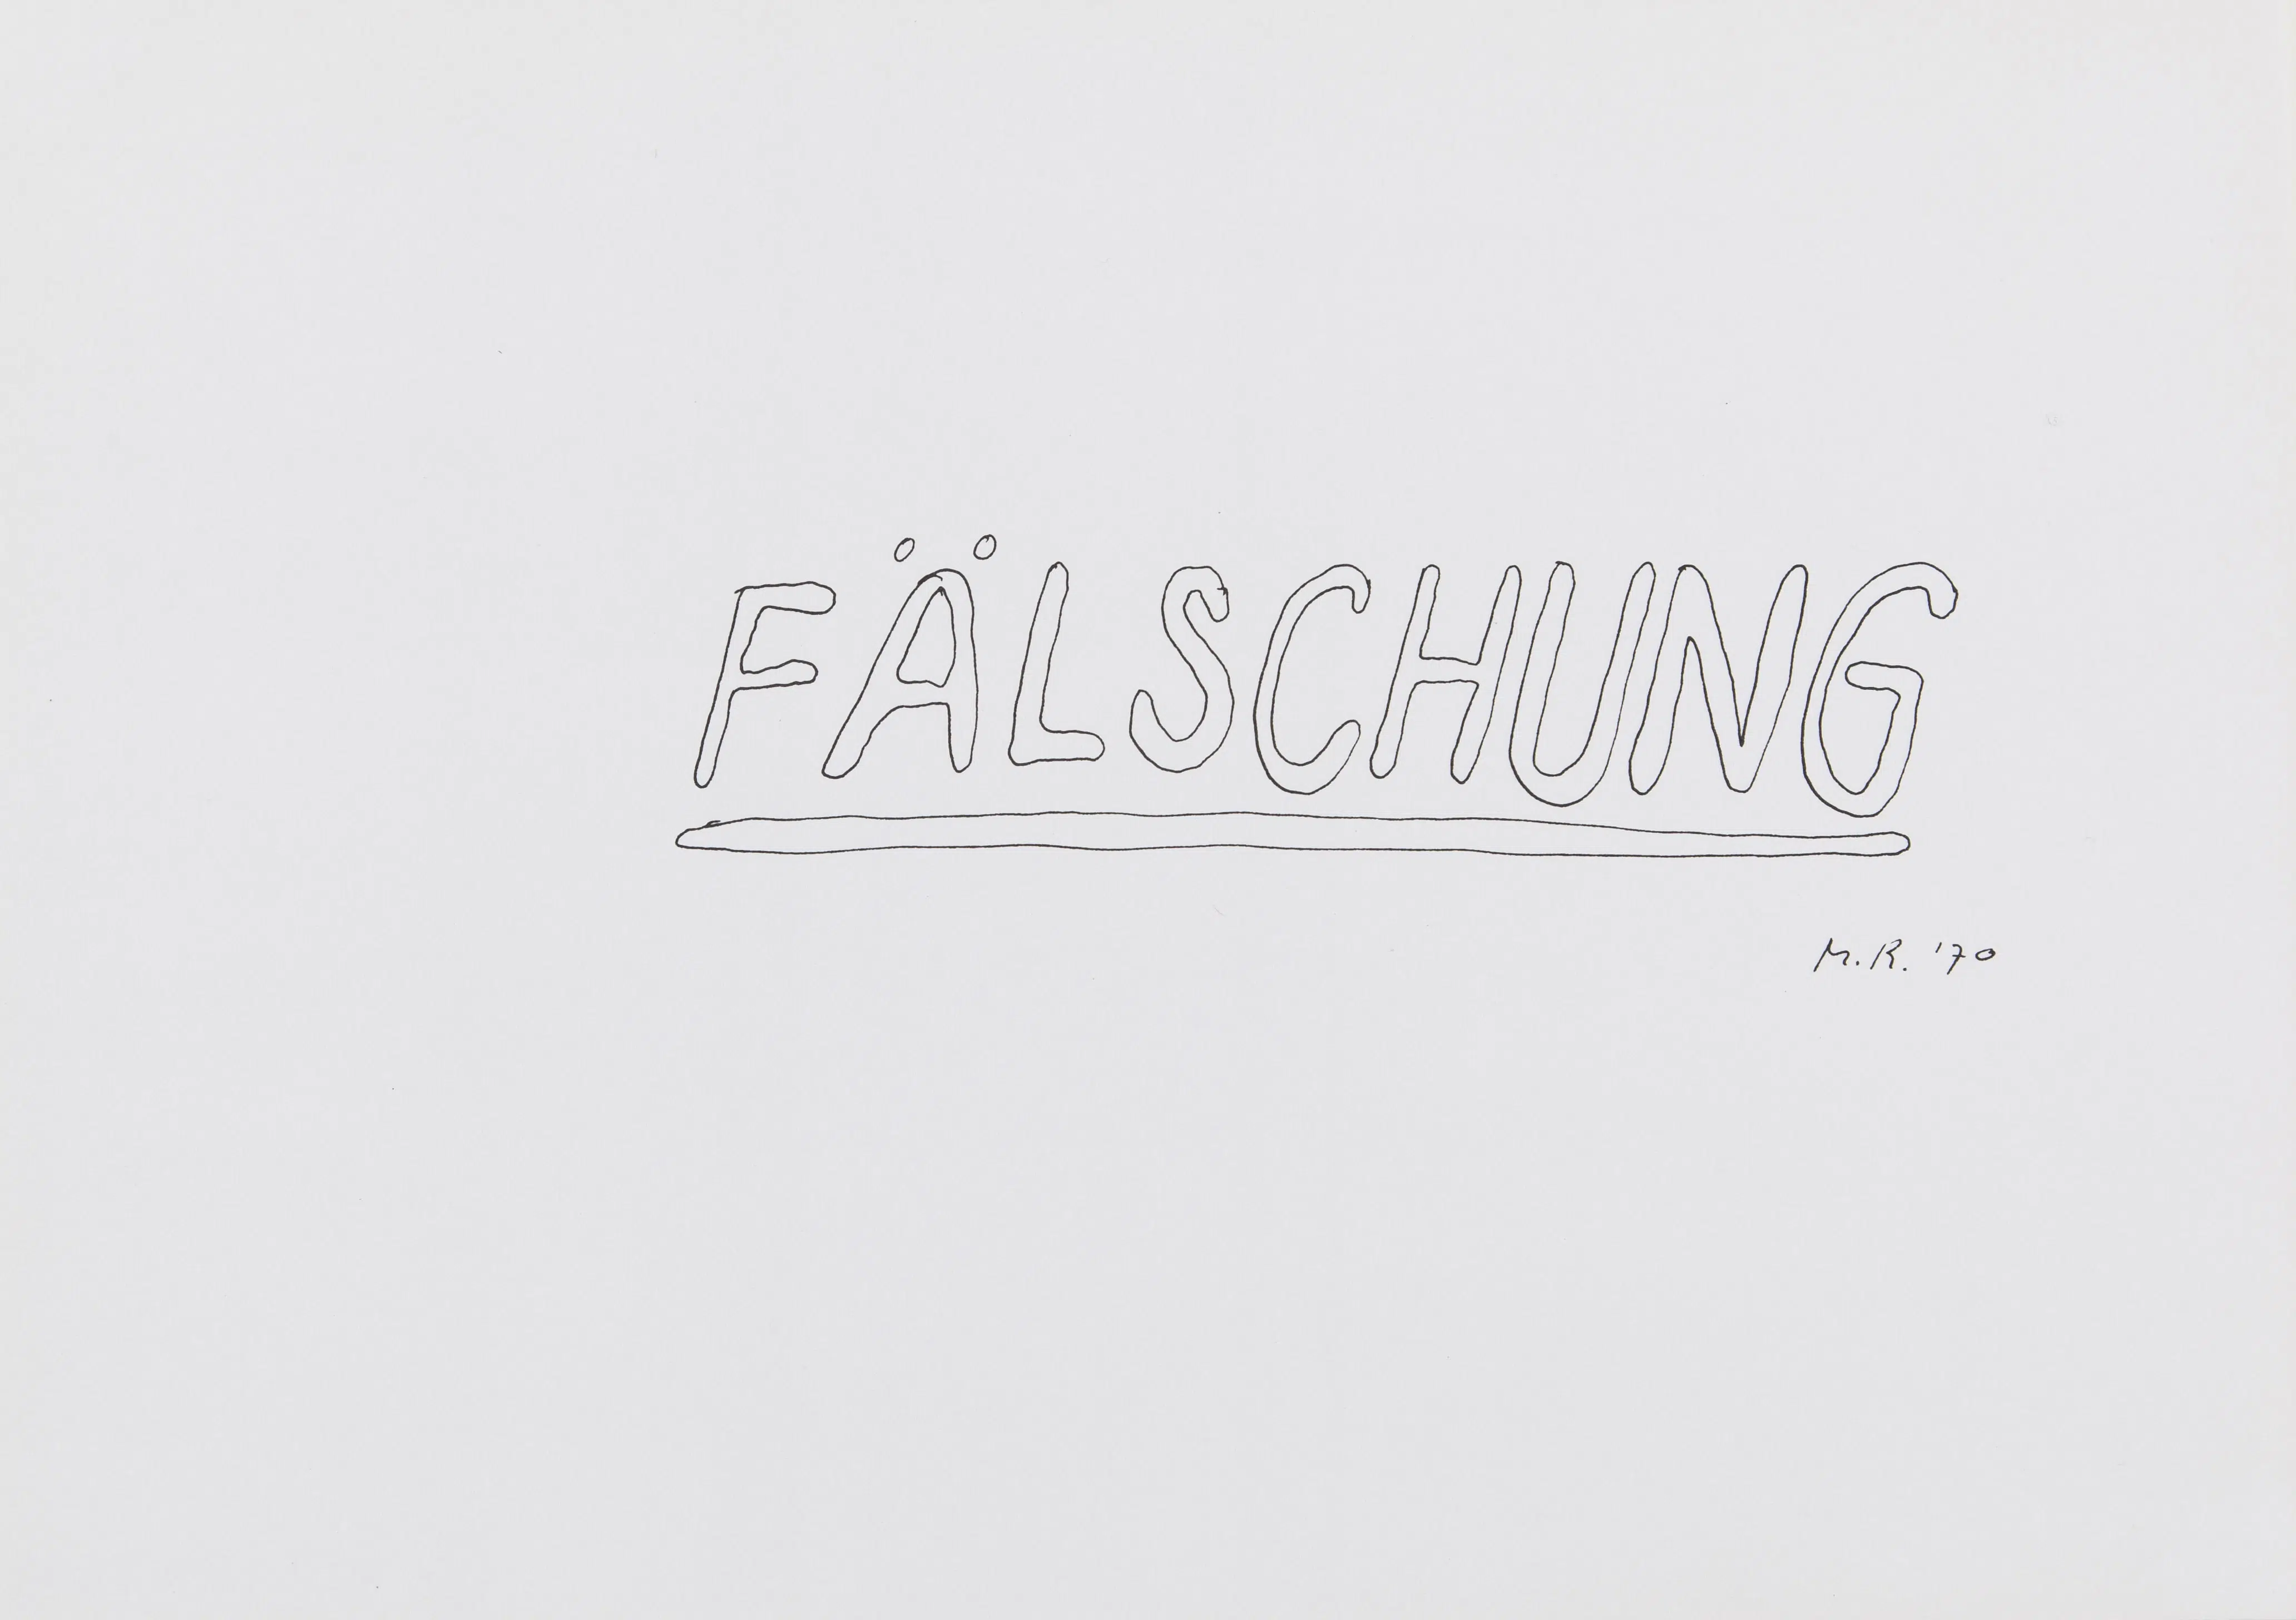 FÄLSCHUNG
M.R. '70